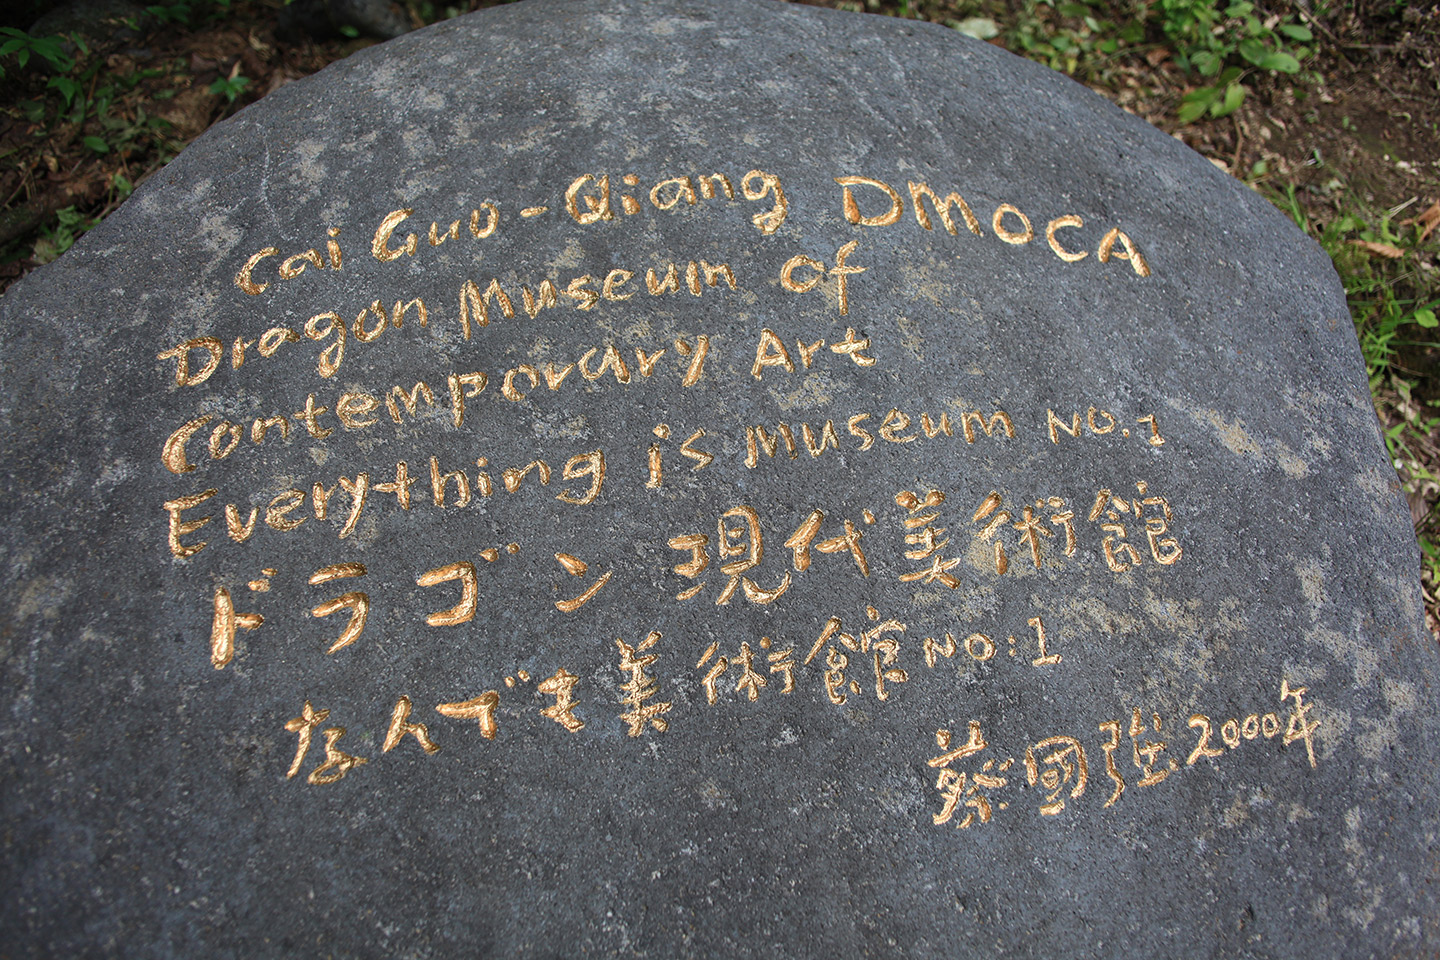 Cai Guo-Qiang DMOCA
Dragon Museum of
Contemporary Art
Everything is Museum NO.1
ドラゴン現代美術館
なんでも美術館 NO:1
蔡國強 2000年